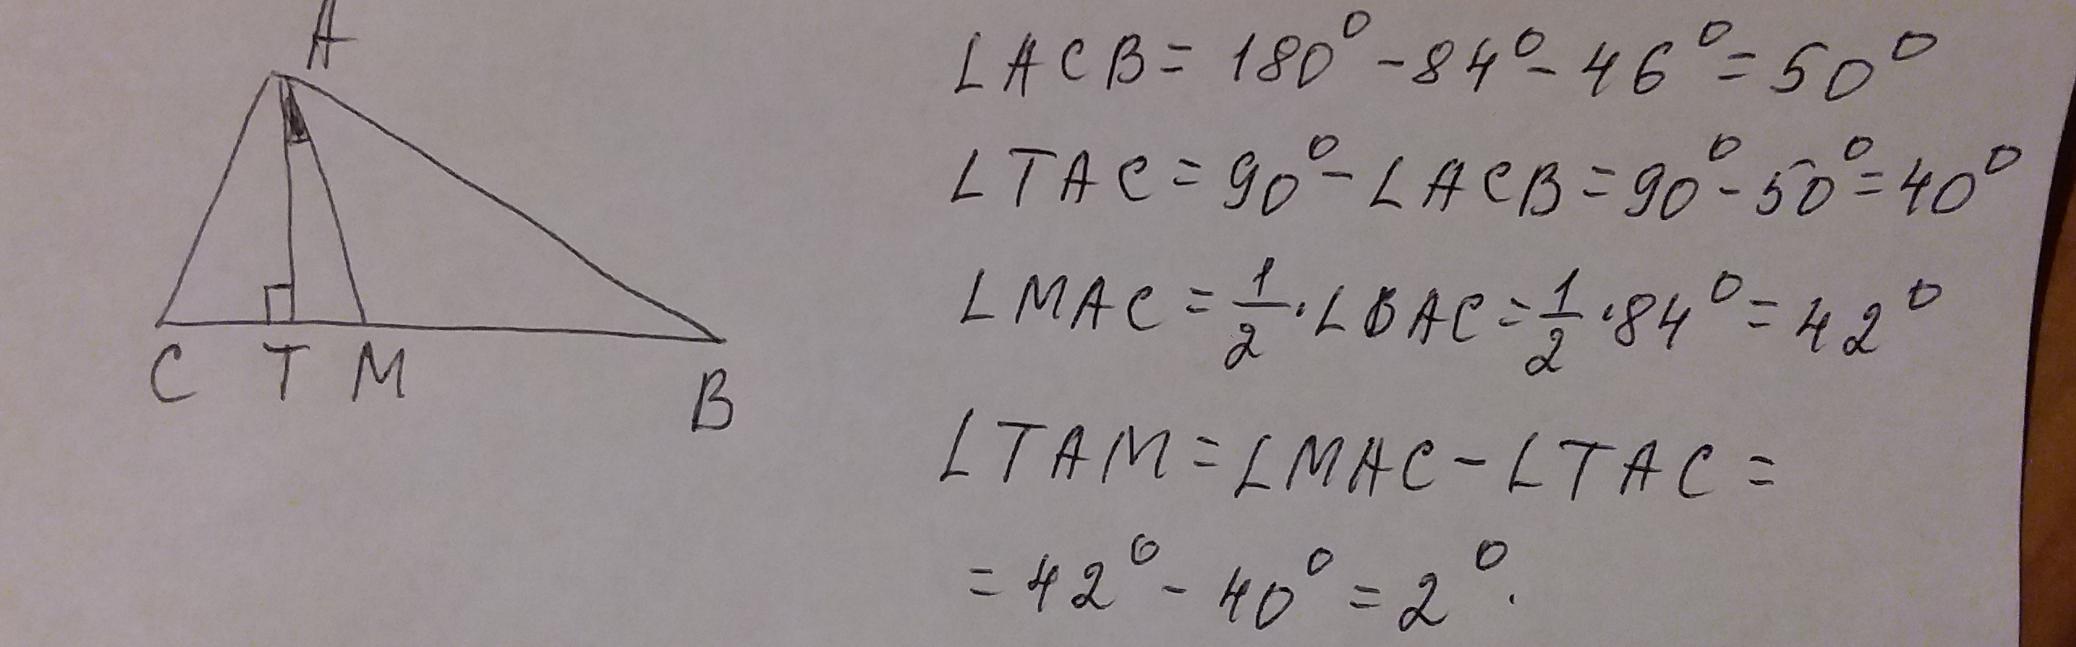 A
C T M
B
∠ACB = 180° - 84° - 46° = 50°
∠TAC = 90° - ∠ACB = 90° - 50° = 40°
∠MAC = 1/2 · ∠BAC = 1/2 · 84° = 42°
∠TAM = ∠MAC - ∠TAC =
= 42° - 40° = 2°.